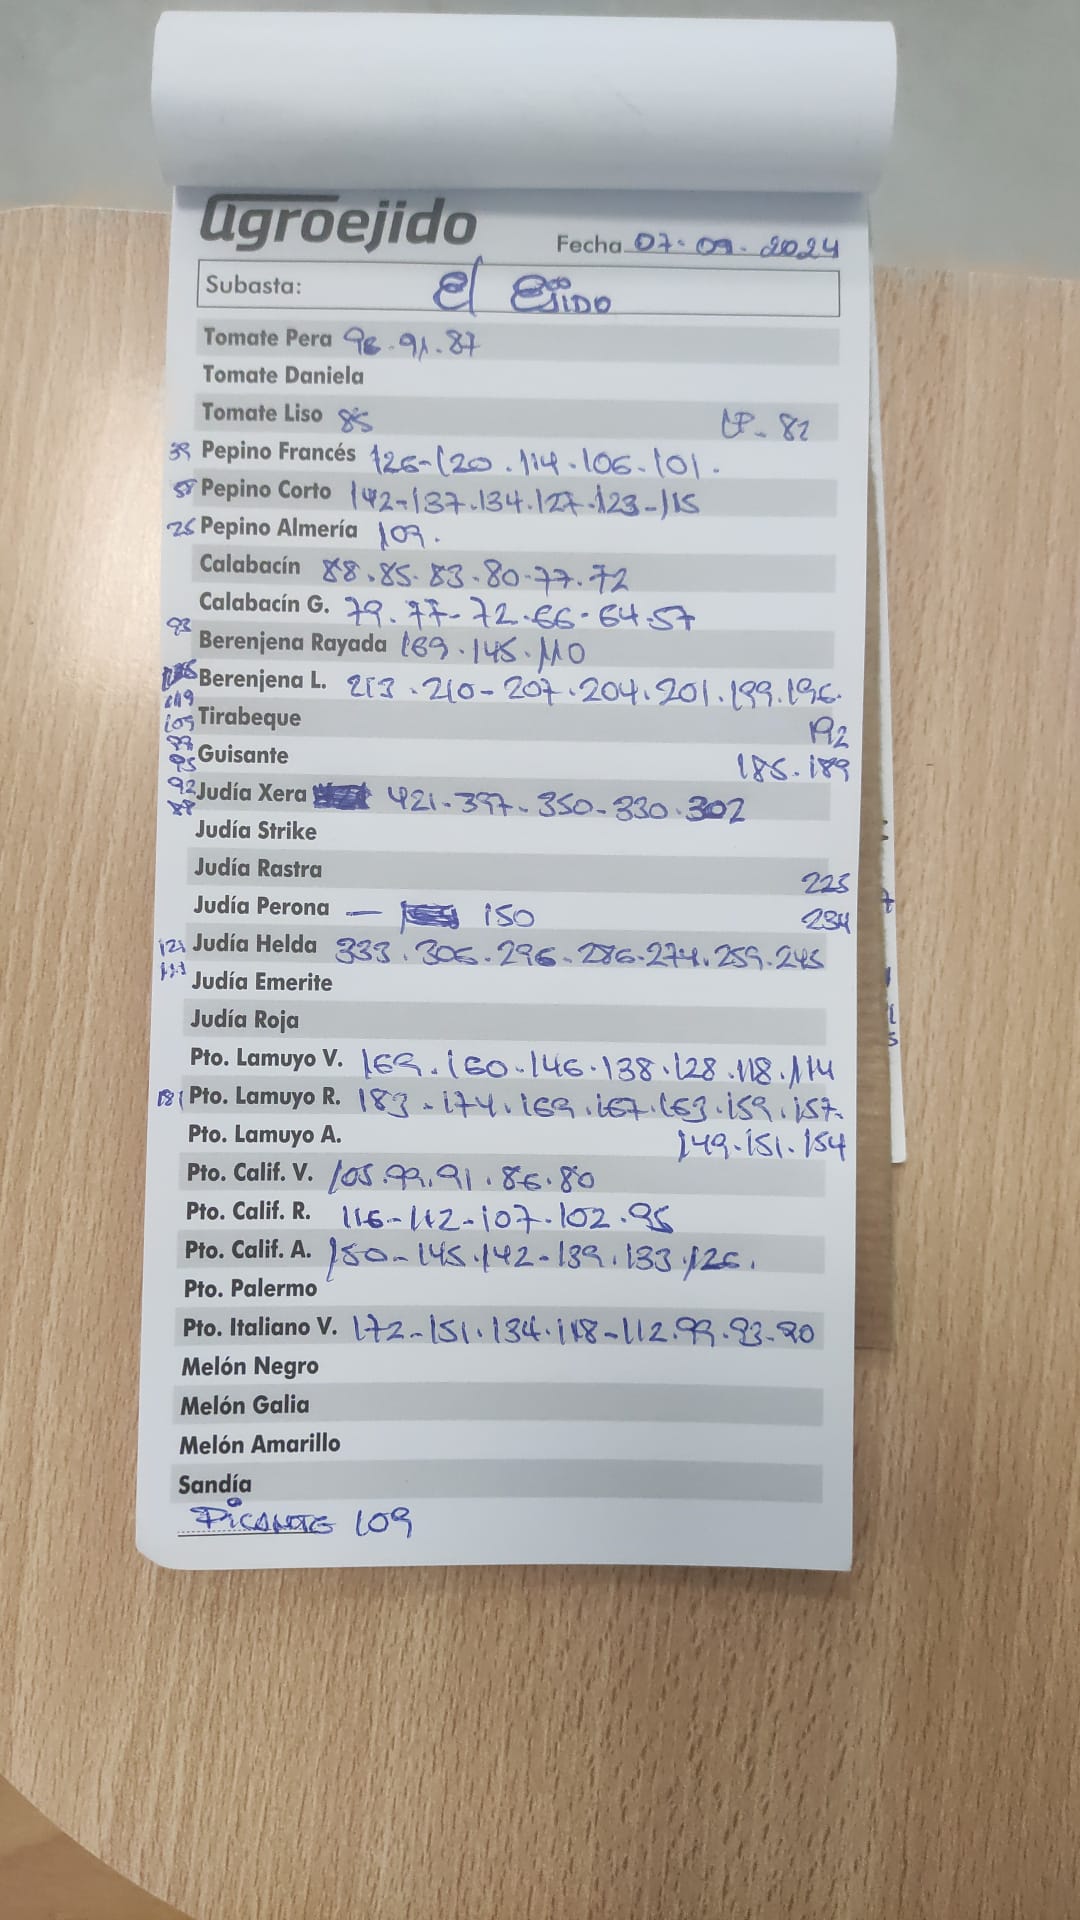 agroejido
Fecha 07-09-2024
Subasta: El Ejido
Tomate Pera 96.91.87
Tomate Daniela
Tomate Liso 85 LP-82
39 Pepino Francés 126-120.114.106.101.
58 Pepino Corto 142-137.134.127.123-115
25 Pepino Almería 109.
Calabacín 88.85.83.80.77.72
Calabacín G. 79.77-72.66-64.57
93 Berenjena Rayada 169.145.110
Berenjena L. 213.210-207.204.201.199.196.
119
109 Tirabeque 192
99
95 Guisante 185.189
92 Judía Xera 421-397-350-330.302
88
Judía Strike
Judía Rastra 225
Judía Perona — 150 234
121 Judía Helda 333.306.296-286-274.259.245
111
Judía Emerite
Judía Roja
Pto. Lamuyo V. 169.160-146.138.128.118.114
181 Pto. Lamuyo R. 183-174.169.167.163.159.157.
Pto. Lamuyo A. 149.151.154
Pto. Calif. V. 105.99.91.86.80
Pto. Calif. R. 116-112-107.102.95
Pto. Calif. A. 150-145.142-139.133.126.
Pto. Palermo
Pto. Italiano V. 172-151.134.118-112.99.93-90
Melón Negro
Melón Galia
Melón Amarillo
Sandía
Picante 109